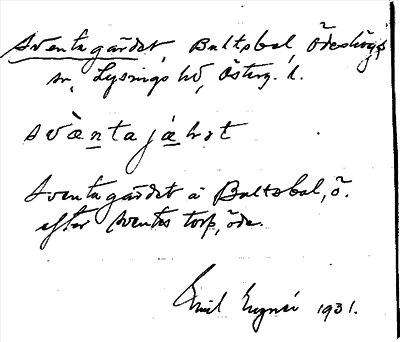 Sventagärdet, Baltsbol, Ödeshögs
sn, Lysings hd, Österg. l.
svæ̀ntajæ̀ḷət
Sventagärdet å Baltsbol, ö.
efter Sventes torp, öde.
Emil 1931.